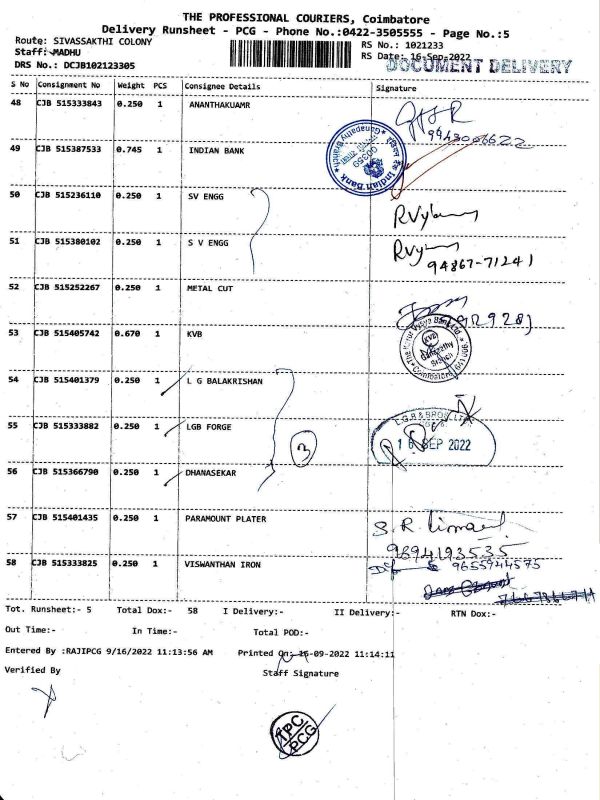 THE PROFESSIONAL COURIERS, Coimbatore
Delivery Runsheet - PCG - Phone No.:0422-3505555 - Page No.:5
Route: SIVASSAKTHI COLONY
RS No.: 1021233
Staff: MADHU
RS Date: 16-Sep-2022
DRS No.: DCJB102123305
DOCUMENT DELIVERY
S No Consignment No Weight PCS Consignee Details Signature
48 CJB 515333843 0.250 1 ANANTHAKUAMR
9443006622
49 CJB 515387533 0.745 1 INDIAN BANK
Indian Bank
Ganapathy Branch
50 CJB 515236110 0.250 1 SV ENGG
51 CJB 515380102 0.250 1 S V ENGG
94867-71241
52 CJB 515252267 0.250 1 METAL CUT
53 CJB 515405742 0.670 1 KVB
KVB
Ganapathy
Branch
Coimbatore
54 CJB 515401379 0.250 1 L G BALAKRISHAN
55 CJB 515333882 0.250 1 LGB FORGE
3
16 SEP 2022
56 CJB 515366790 0.250 1 DHANASEKAR
57 CJB 515401435 0.250 1 PARAMOUNT PLATER
9894193535
58 CJB 515333825 0.250 1 VISWANTHAN IRON
9655944575
Tot. Runsheet:- 5 Total Dox:- 58 I Delivery:- II Delivery:- RTN Dox:-
Out Time:- In Time:- Total POD:-
Entered By :RAJIPCG 9/16/2022 11:13:56 AM Printed On: 16-09-2022 11:14:11
Verified By Staff Signature
TPC
PCG